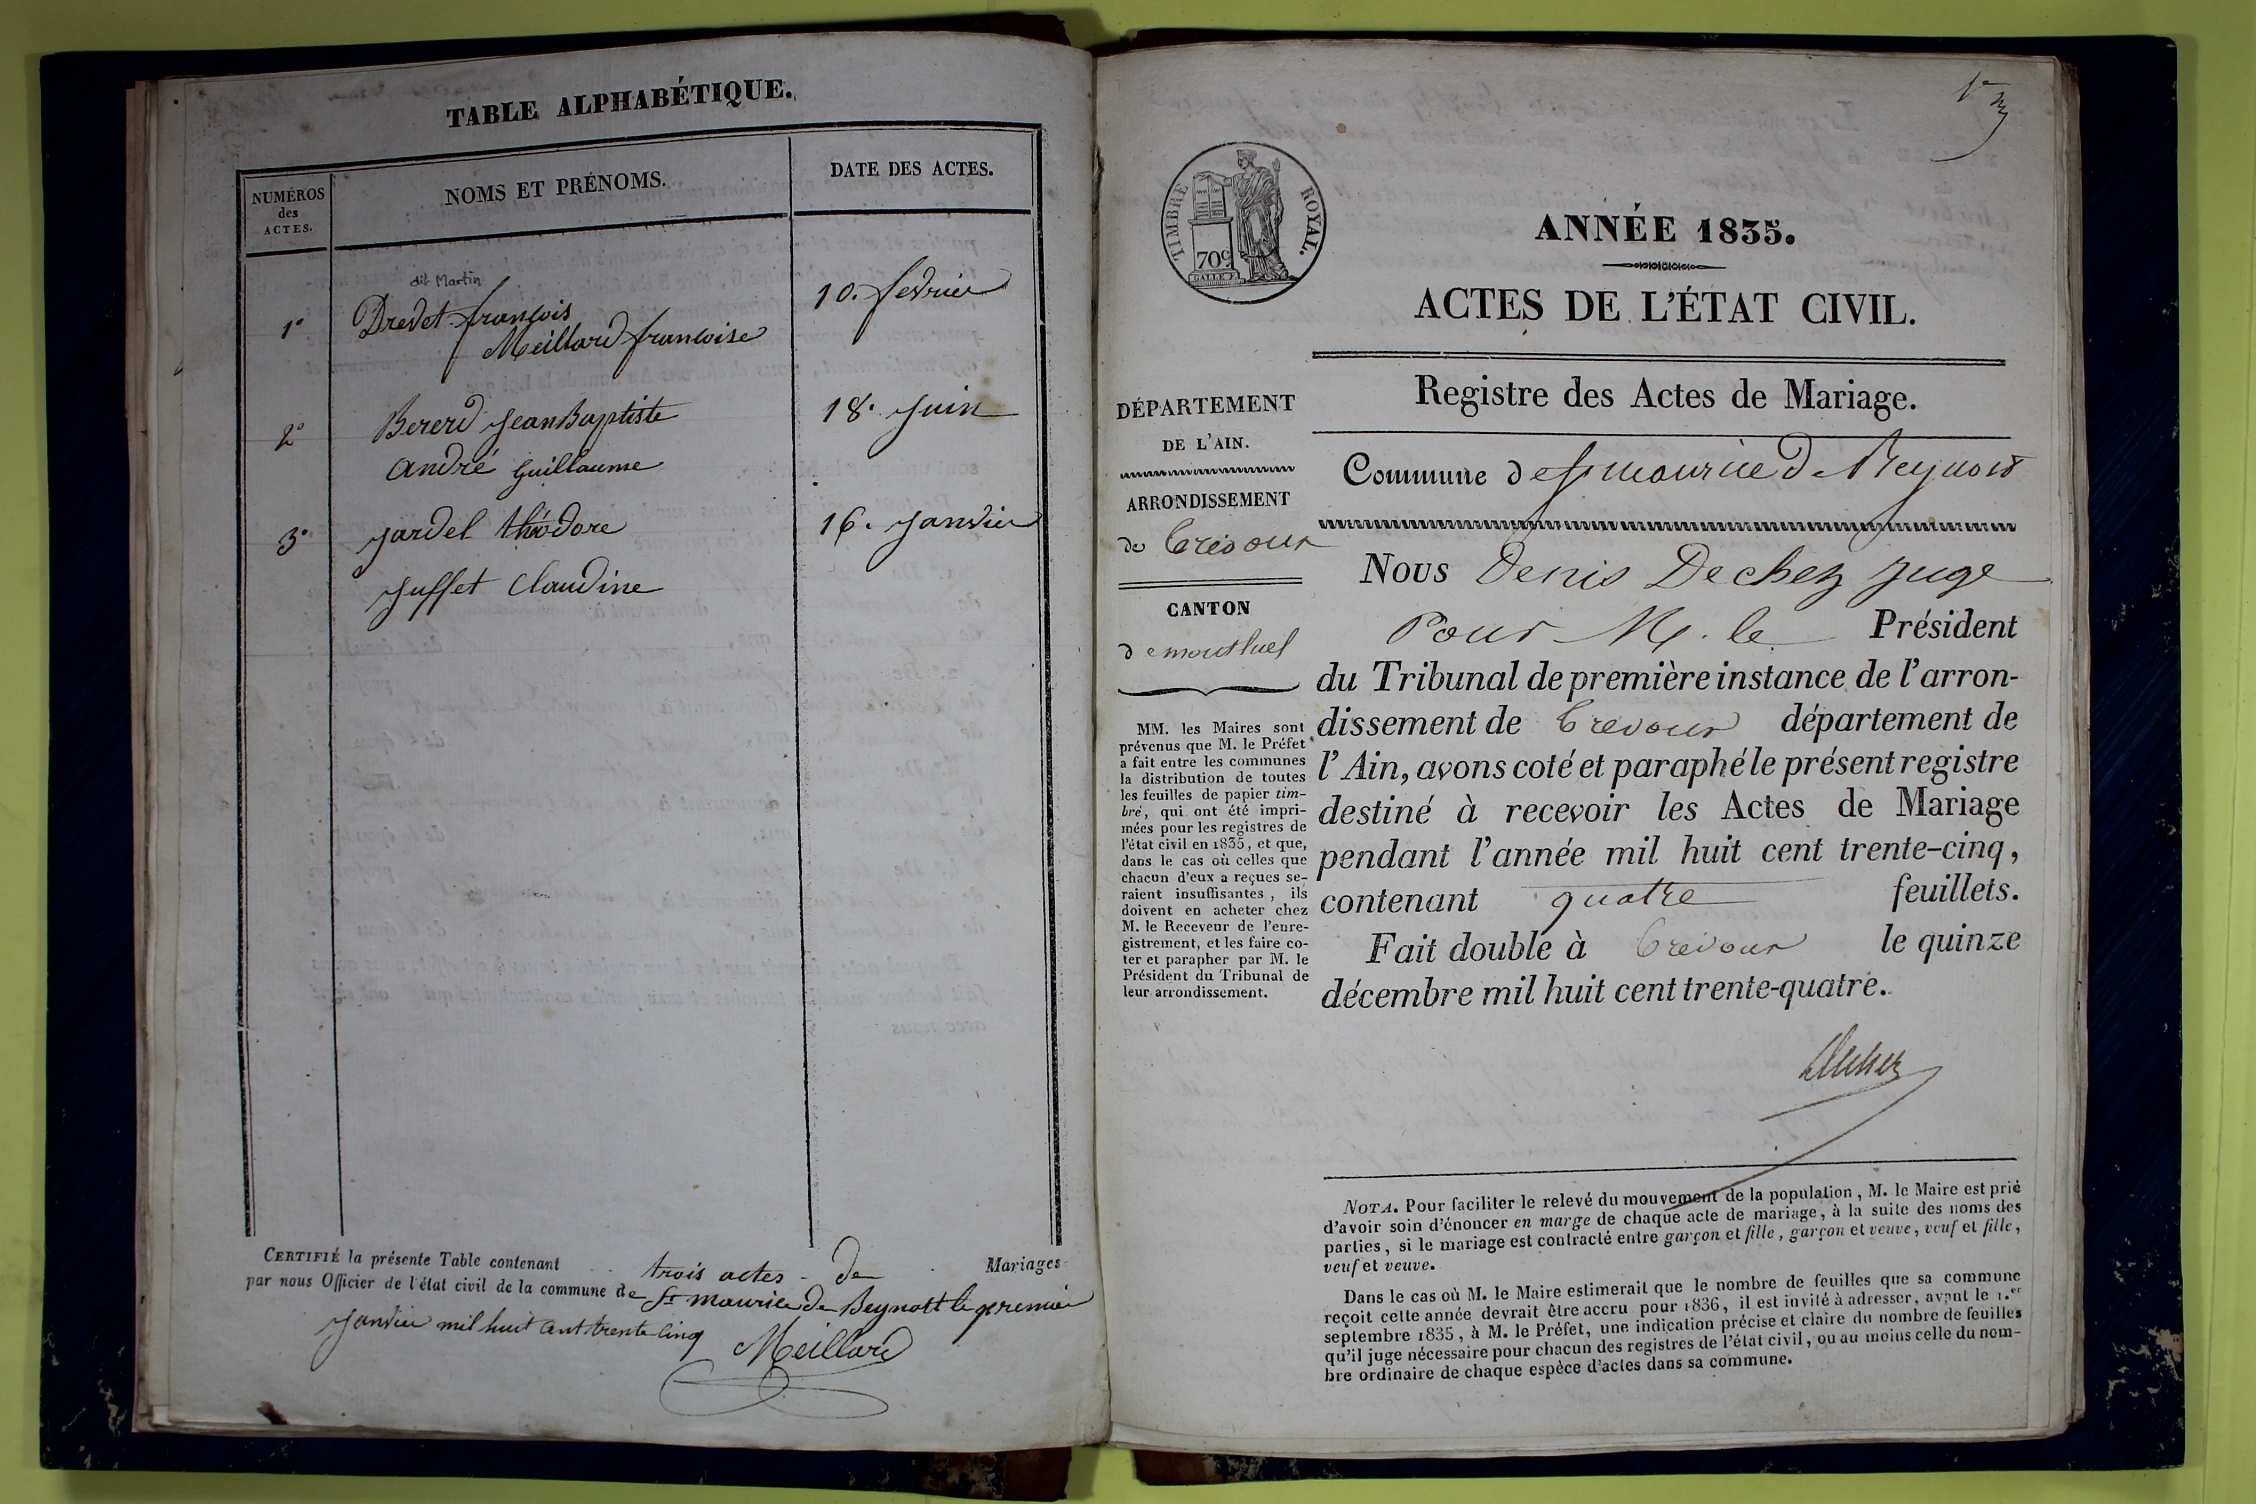 TABLE ALPHABÉTIQUE.
NUMÉROS
des
ACTES.
NOMS ET PRÉNOMS.
DATE DES ACTES.
dit Martin
1° Drevet françois 10. fevrier
Meillard francoise
2° Bererd Jean Baptiste 18. Juin
andré guillaume
3° Jardel théodore 16. Janvier
Juffet Claudine
CERTIFIÉ la présente Table contenant trois actes de Mariages
par nous Officier de l'état civil de la commune de St maurice de Beynost le premier
Janvier mil huit cent trente cinq
Meillard
1er
TIMBRE ROYAL.
70c
ANNÉE 1835.
ACTES DE L'ÉTAT CIVIL.
Registre des Actes de Mariage.
Commune de St maurice de Beynost
DÉPARTEMENT
DE L'AIN.
ARRONDISSEMENT
de Trévoux
CANTON
de montluel
MM. les Maires sont
prévenus que M. le Préfet
a fait entre les communes
la distribution de toutes
les feuilles de papier tim-
bré, qui ont été impri-
mées pour les registres de
l'état civil en 1835, et que,
dans le cas où celles que
chacun d'eux a reçues se-
raient insuffisantes, ils
doivent en acheter chez
M. le Receveur de l'enre-
gistrement, et les faire co-
ter et parapher par M. le
Président du Tribunal de
leur arrondissement.
Nous Denis Dechez juge
Pour M. le Président
du Tribunal de première instance de l'arron-
dissement de Trevoux département de
l'Ain, avons coté et paraphé le présent registre
destiné à recevoir les Actes de Mariage
pendant l'année mil huit cent trente-cinq,
contenant quatre feuillets.
Fait double à Trevoux le quinze
décembre mil huit cent trente-quatre.
Dechez
NOTA. Pour faciliter le relevé du mouvement de la population, M. le Maire est prié
d'avoir soin d'énoncer en marge de chaque acte de mariage, à la suite des noms des
parties, si le mariage est contracté entre garçon et fille, garçon et veuve, veuf et fille,
veuf et veuve.
Dans le cas où M. le Maire estimerait que le nombre de feuilles que sa commune
reçoit cette année devrait être accru pour 1836, il est invité à adresser, avant le 1.er
septembre 1835, à M. le Préfet, une indication précise et claire du nombre de feuilles
qu'il juge nécessaire pour chacun des registres de l'état civil, ou au moins celle du nom-
bre ordinaire de chaque espèce d'actes dans sa commune.